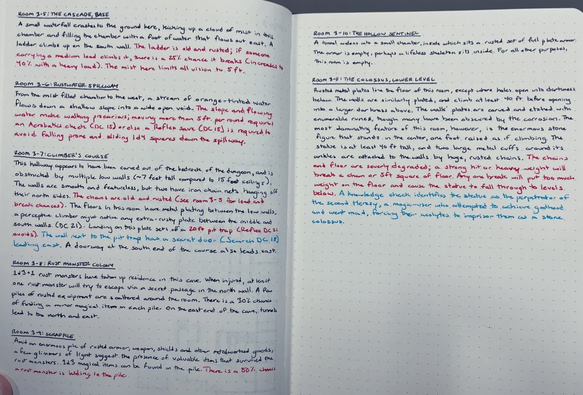 ROOM 3-5: THE CASCADE, BASE
A small waterfall crashes to the ground here, kicking up a cloud of mist in this
chamber and filling the chamber with a foot of water that flows out east. A
ladder climbs up on the south wall. The ladder is old and rusted; if someone
carrying a medium load climbs it, there is a 25% chance it breaks (increased to
40% with a heavy load). The mist here limits all vision to 5ft.
ROOM 3-6: RUSTWATER SPILLWAY
From the mist-filled chamber to the west, a stream of orange-tinted water
flows down a shallow slope into a wide open void. The slope and flowing
water make walking precarious; moving more than 5ft. per round requires
an Acrobatics check (DC 15) or else a Reflex Save (DC 15) is required to
avoid falling prone and sliding 1d4 squares down the spillway.
ROOM 3-7: CLIMBER'S COURSE
This hallway appears to have been carved out of the bedrock of the dungeon, and is
obstructed by multiple low walls (~7 foot tall compared to 15 foot ceiling).
The walls are smooth and featureless, but two have iron chain nets hanging off
their north sides. The chains are old and rusted (see room 3-5 for load and
break chances). The floors in this room have metal plating between the low walls,
a perceptive climber might notice any extra-rusty plate between the middle and
south walls (DC 21). Landing on this plate sets of a 20ft pit trap (Reflex DC 21
avoids). The wall next to the pit trap has a secret door (Search DC 18)
leading east. A doorway at the south end of the course also leads east.
ROOM 3-8: RUST MONSTER COLONY
1d3+1 rust monsters have taken up residence in this cave. When injured, at least
one rust monster will try to escape via a secret passage in the north wall. A few
piles of rusted equipment are scattered around the room. There is a 30% chance
of finding a minor magical item in each pile. On the east end of the cave, tunnels
lead to the north and east.
ROOM 3-9: SCRAPPILE
Amid an enormous pile of rusted armor, weapons, shields and other metalworked goods,
a few glimmers of light suggest the presence of valuable items that survived the
rust monsters. 1d3 magical items can be found in the pile. There is a 50% chance
a rust monster is hiding in the pile.
ROOM 3-10: THE HOLLOW SENTINEL
A tunnel widens into a small chamber, inside which sits a rusted set of full plate armor.
The armor is empty, perhaps a lifeless skeleton sits inside. For all other purposes,
this room is empty.
ROOM 3-11: THE COLOSSUS, LOWER LEVEL
Rusted metal plates line the floor of this room, except where holes open into darkness
below. The walls are similarly plated, and climb at least 40 ft before opening
into a larger darkness above. The walls plates are carved and etched with
enumerable runes, though many have been obscured by the corrosion. The
most dominating feature of this room, however, is the enormous stone
figure that stands in the center, one foot raised as if climbing. The
statue is at least 40 ft tall, and two large metal cuffs around its
ankles are rotated to the walls by huge, rusted chains. The chains
and floor are severely degraded; a strong hit or heavy weight will
break a chain or 5ft square of floor. Any one break will put too much
weight on the floor and cause the statue to fall through to levels
below. A knowledge check identifies the statue as the perpetrator of
the second heresy, a magic-user who attempted to achieve godhood
and went mad, forcing their acolytes to imprison them as a stone
colossus.